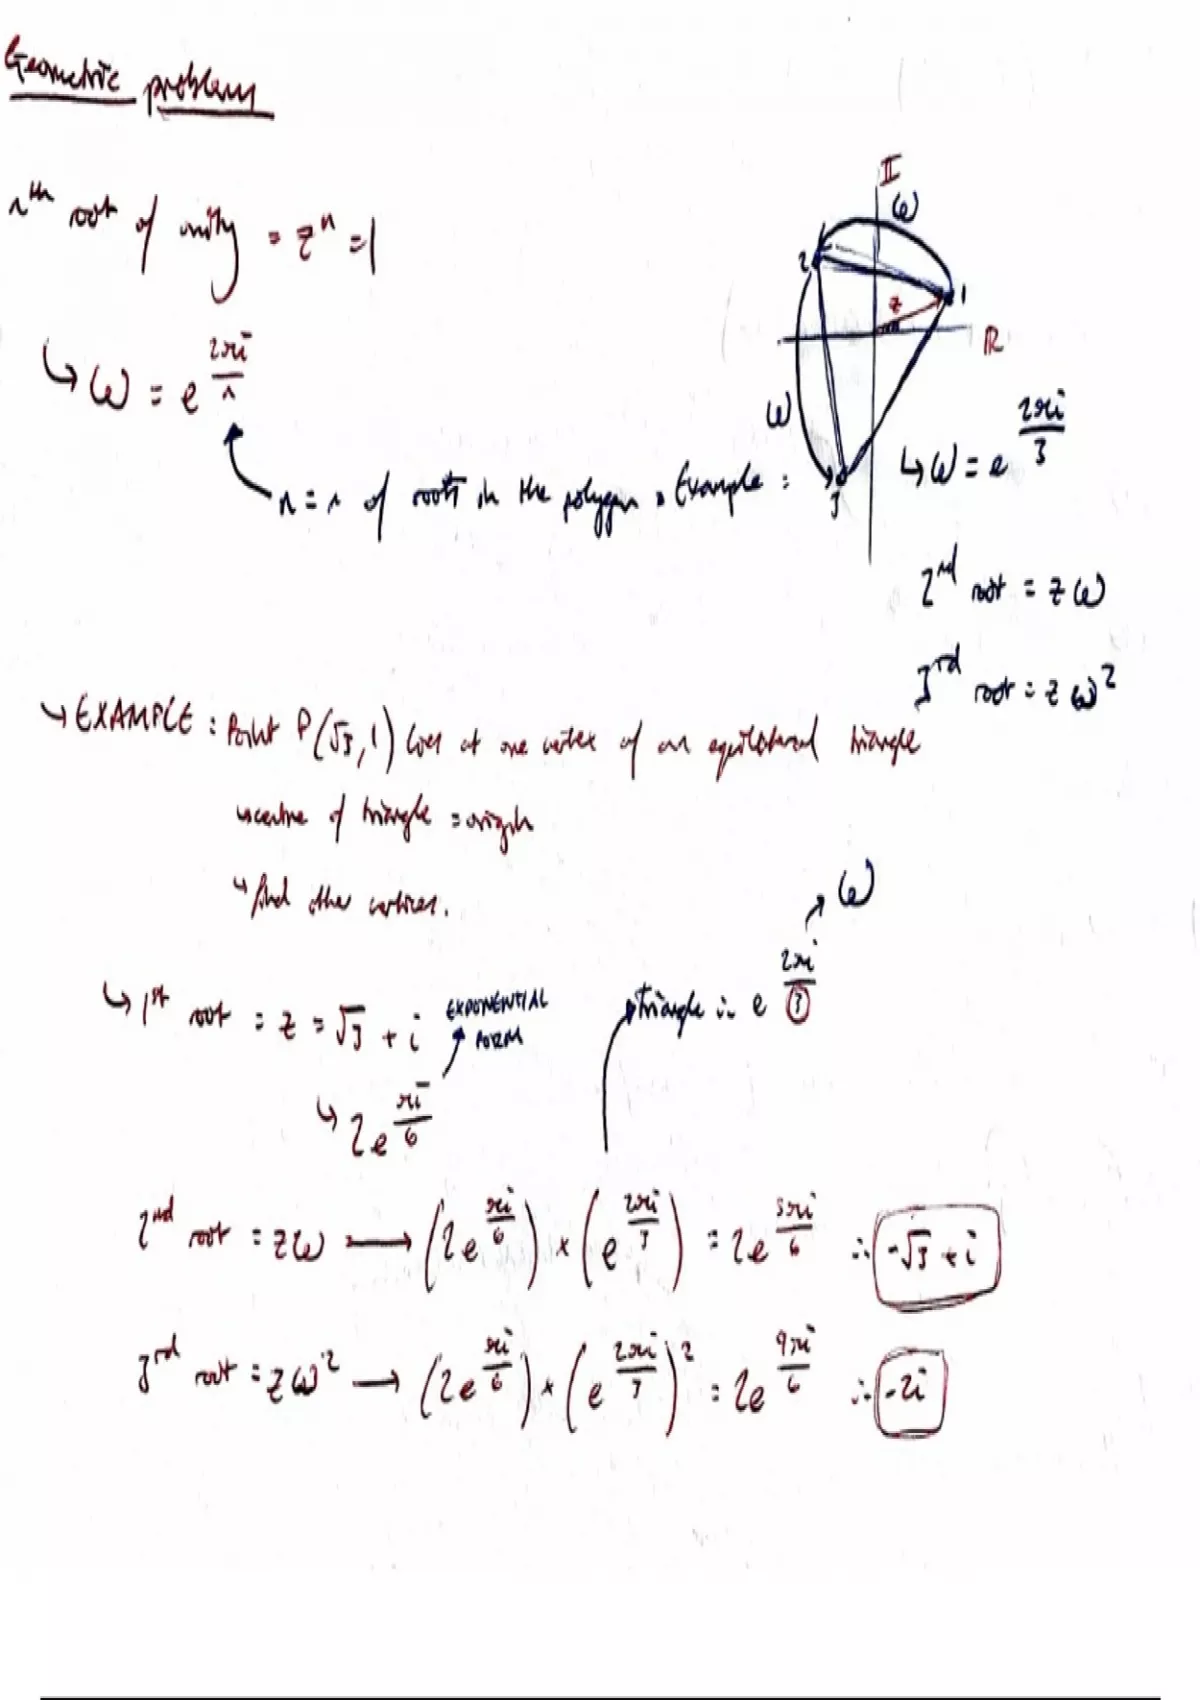 Geometric problem
nᵗʰ root of unity = zⁿ = 1
↳ ω = e^(2πi/n)
n = n of roots in the polygon. Example :
II
ω
2
1
z
R
ω
3
↳ ω = e^(2πi/3)
2ⁿᵈ root = zω
3ʳᵈ root = zω²
↳ EXAMPLE : Point P(√3, 1) lies at one vertex of an equilateral triangle
↳ centre of triangle = origin
↳ find other vertices.
↳ 1ˢᵗ root = z = √3 + i
EXPONENTIAL
FORM
↳ 2e^(πi/6)
triangle ∴ e^(2πi/3)
ω
2ⁿᵈ root = zω → (2e^(πi/6)) × (e^(2πi/3)) = 2e^(5πi/6) ∴ -√3 + i
3ʳᵈ root = zω² → (2e^(πi/6)) × (e^(2πi/3))² = 2e^(9πi/6) ∴ -2i